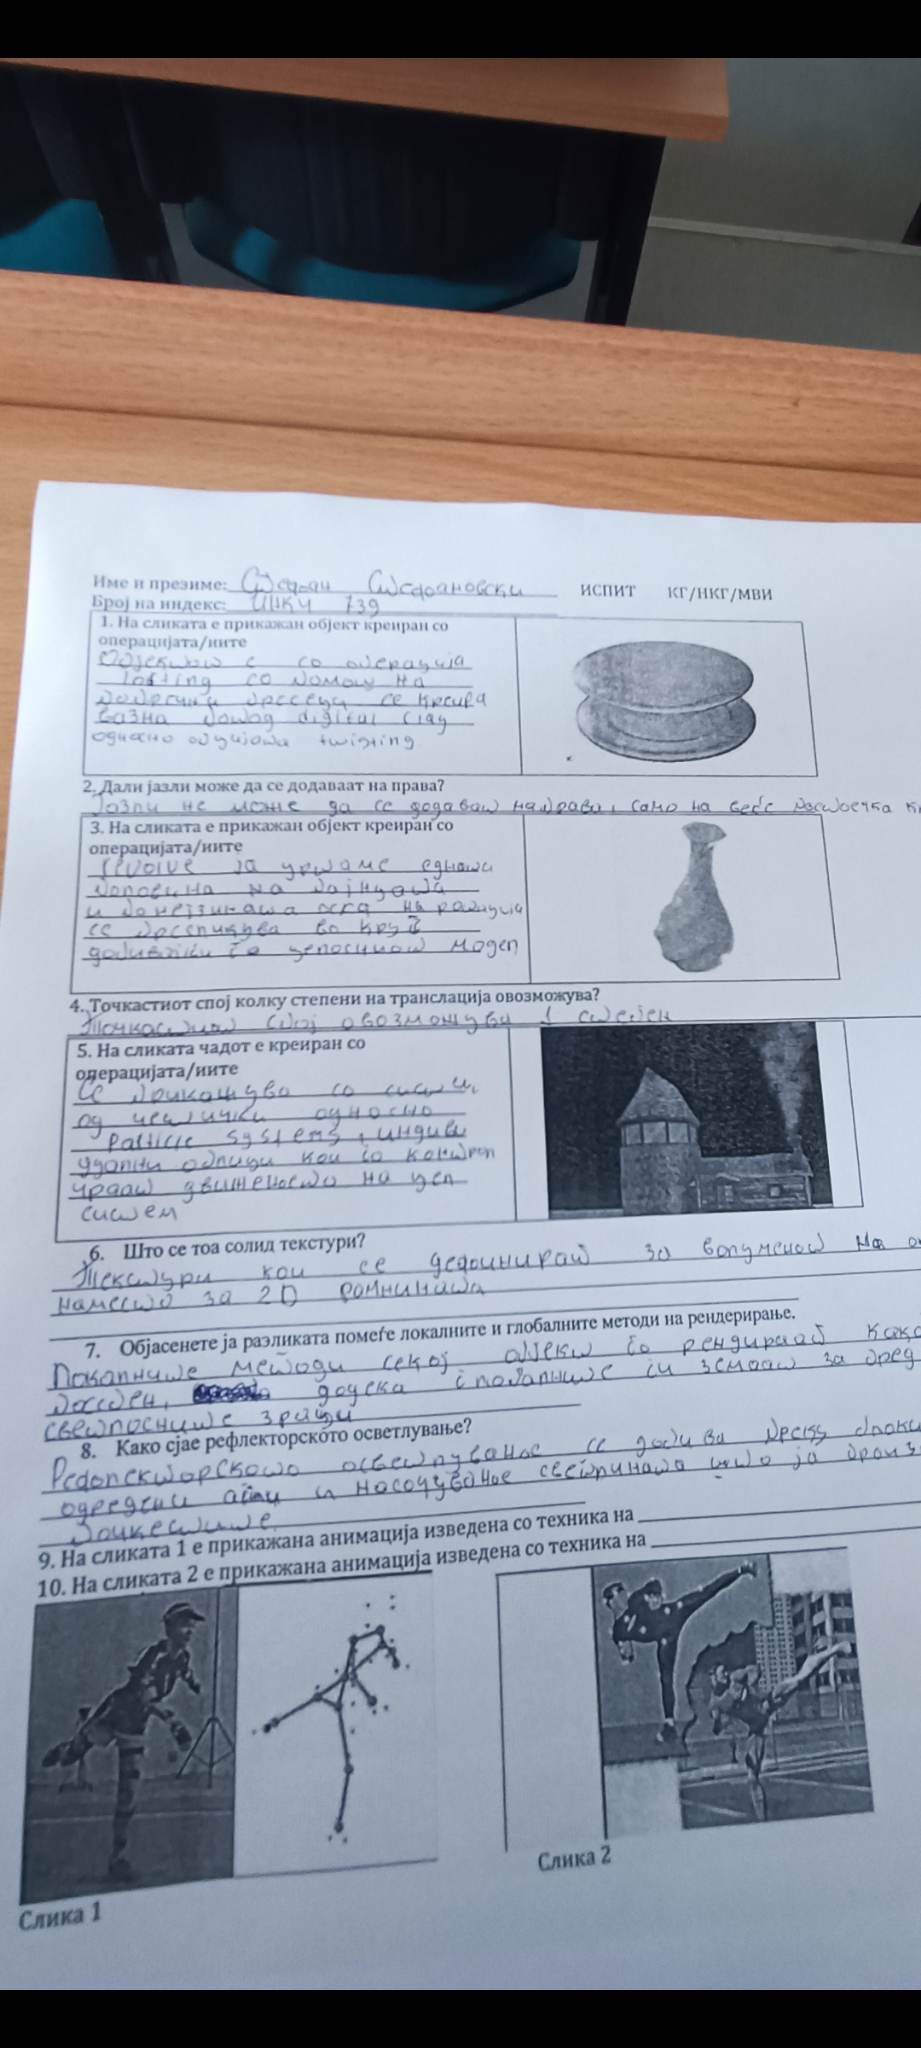 Име и презиме: Стефан Стефановски ИСПИТ КГ/НКГ/МВИ
Број на индекс: ИНКИ 739
1. На сликата е прикажан објект креиран со
операцијата/ните
Објектот е со операција
lofting со помош на
попречни пресеци се креира
вазна повод digital clay
односно опцијата twisting
2. Дали јазли може да се додаваат на права?
Јазли не може да се додават на права, само на веќе
3. На сликата е прикажан објект креиран со
операцијата/ните
revolve ја цртаме едната
половина на
и по нејзината оска на ротација
се во круг
добивајќи го целосниот модел
4. Точкастиот спој колку степени на транслација овозможува?
Точкастиот спој овозможува 1 степен
5. На сликата чадот е креиран со
операцијата/ните
Се прикажува со систем
од честички односно
Particle systems, индиви
дуални облици кои го контрол
ираат движењето на цел
систем
6. Што се тоа солид текстури?
Текстури кои се дефинират за волуменот на
наместо за 2D
7. Објасенете ја разликата помеѓе локалните и глобалните методи на рендерирање.
Локалните методи секој објект го рендираат како
посебен, додека глобалните ги земаат за пред
светлосните зраци
8. Како сјае рефлекторското осветлување?
Рефлекторското осветлување се добива преку
одредени агли и насочување светлината што ја
9. На сликата 1 е прикажана анимација изведена со техника на
10. На сликата 2 е прикажана анимација изведена со техника на
Слика 1
Слика 2